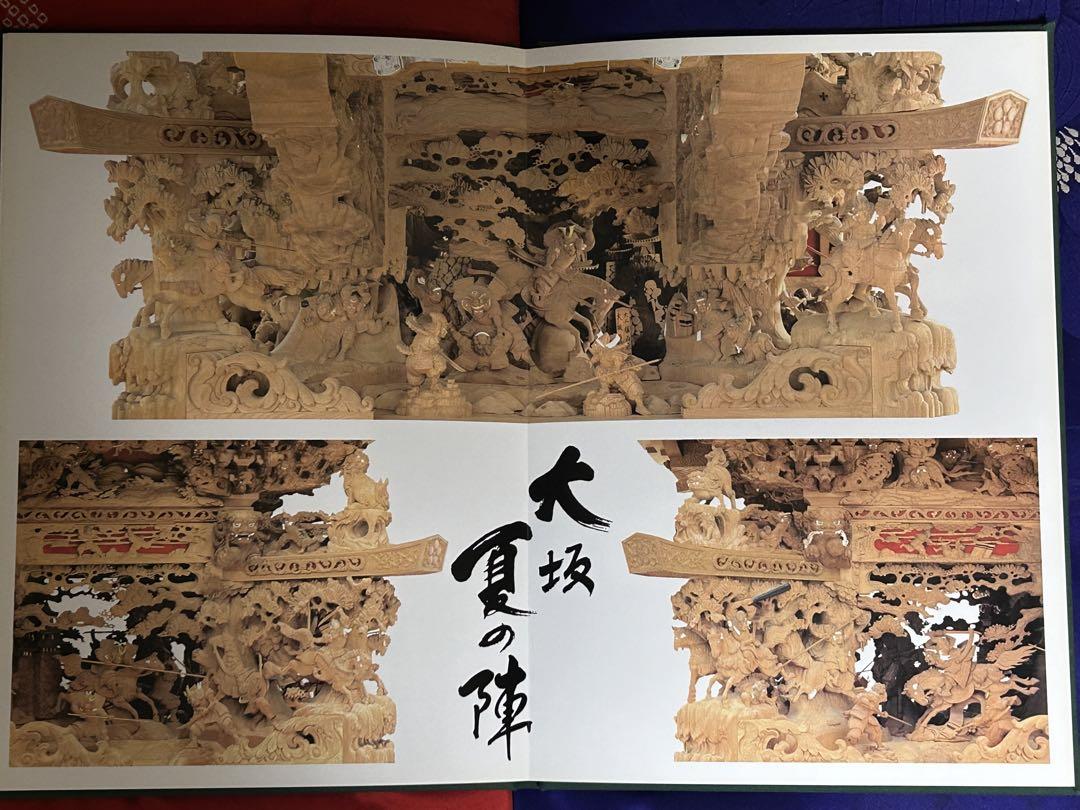 大坂
夏の陣